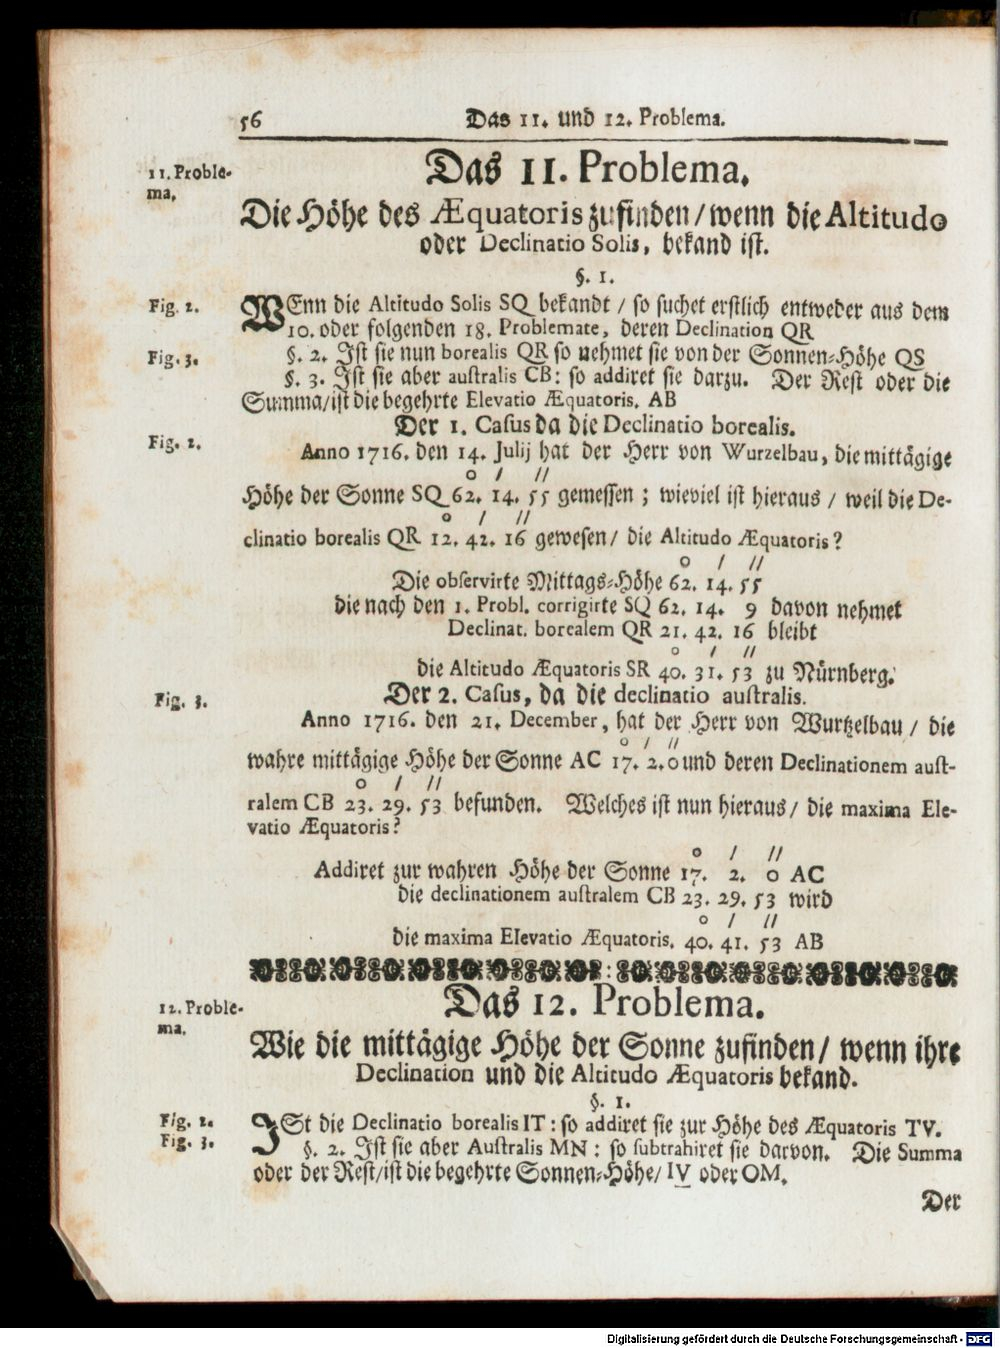 56 Das 11. und 12. Problema.
11. Proble-
ma.
Das 11. Problema.
Die Höhe des Æquatoris zufinden/ wenn die Altitudo
oder Declinatio Solis, bekand ist.
§. 1.
Fig. 2.
WEnn die Altitudo Solis SQ bekandt / so suchet erstlich entweder aus dem
10. oder folgenden 18. Problemate, deren Declination QR
Fig. 3.
§. 2. Ist sie nun borealis QR so nehmet sie von der Sonnen-Höhe QS
§. 3. Ist sie aber australis CB: so addiret sie darzu. Der Rest oder die
Summa/ ist die begehrte Elevatio Æquatoris. AB
Der 1. Casus da die Declinatio borealis.
Fig. 2.
Anno 1716. den 14. Julij hat der Herr von Wurzelbau, die mittägige
o / //
Höhe der Sonne SQ 62. 14. 55 gemessen ; wieviel ist hieraus / weil die De-
o / //
clinatio borealis QR 12. 42. 16 gewesen/ die Altitudo Æquatoris?
o / //
Die observirte Mittags-Höhe 62. 14. 55
die nach den 1. Probl. corrigirte SQ 62. 14. 9 davon nehmet
Declinat. borealem QR 21. 42. 16 bleibt
o / //
die Altitudo Æquatoris SR 40. 31. 53 zu Nürnberg.
Fig. 3.
Der 2. Casus, da die declinatio australis.
Anno 1716. den 21. December, hat der Herr von Wurtzelbau / die
o / //
wahre mittägige Höhe der Sonne AC 17. 2. 0 und deren Declinationem aust-
o / //
ralem CB 23. 29. 53 befunden. Welches ist nun hieraus/ die maxima Ele-
vatio Æquatoris?
o / //
Addiret zur wahren Höhe der Sonne 17. 2. 0 AC
die declinationem australem CB 23. 29. 53 wird
o / //
die maxima Elevatio Æquatoris. 40. 41. 53 AB
12. Proble-
ma.
Das 12. Problema.
Wie die mittägige Höhe der Sonne zufinden/ wenn ihre
Declination und die Altitudo Æquatoris bekand.
§. 1.
Fig. 2.
ISt die Declinatio borealis IT: so addiret sie zur Höhe des Æquatoris TV.
Fig. 3.
§. 2. Ist sie aber Australis MN: so subtrahiret sie darvon. Die Summa
oder der Rest/ ist die begehrte Sonnen-Höhe/ IV oder OM.
Der
Digitalisierung gefördert durch die Deutsche Forschungsgemeinschaft - DFG